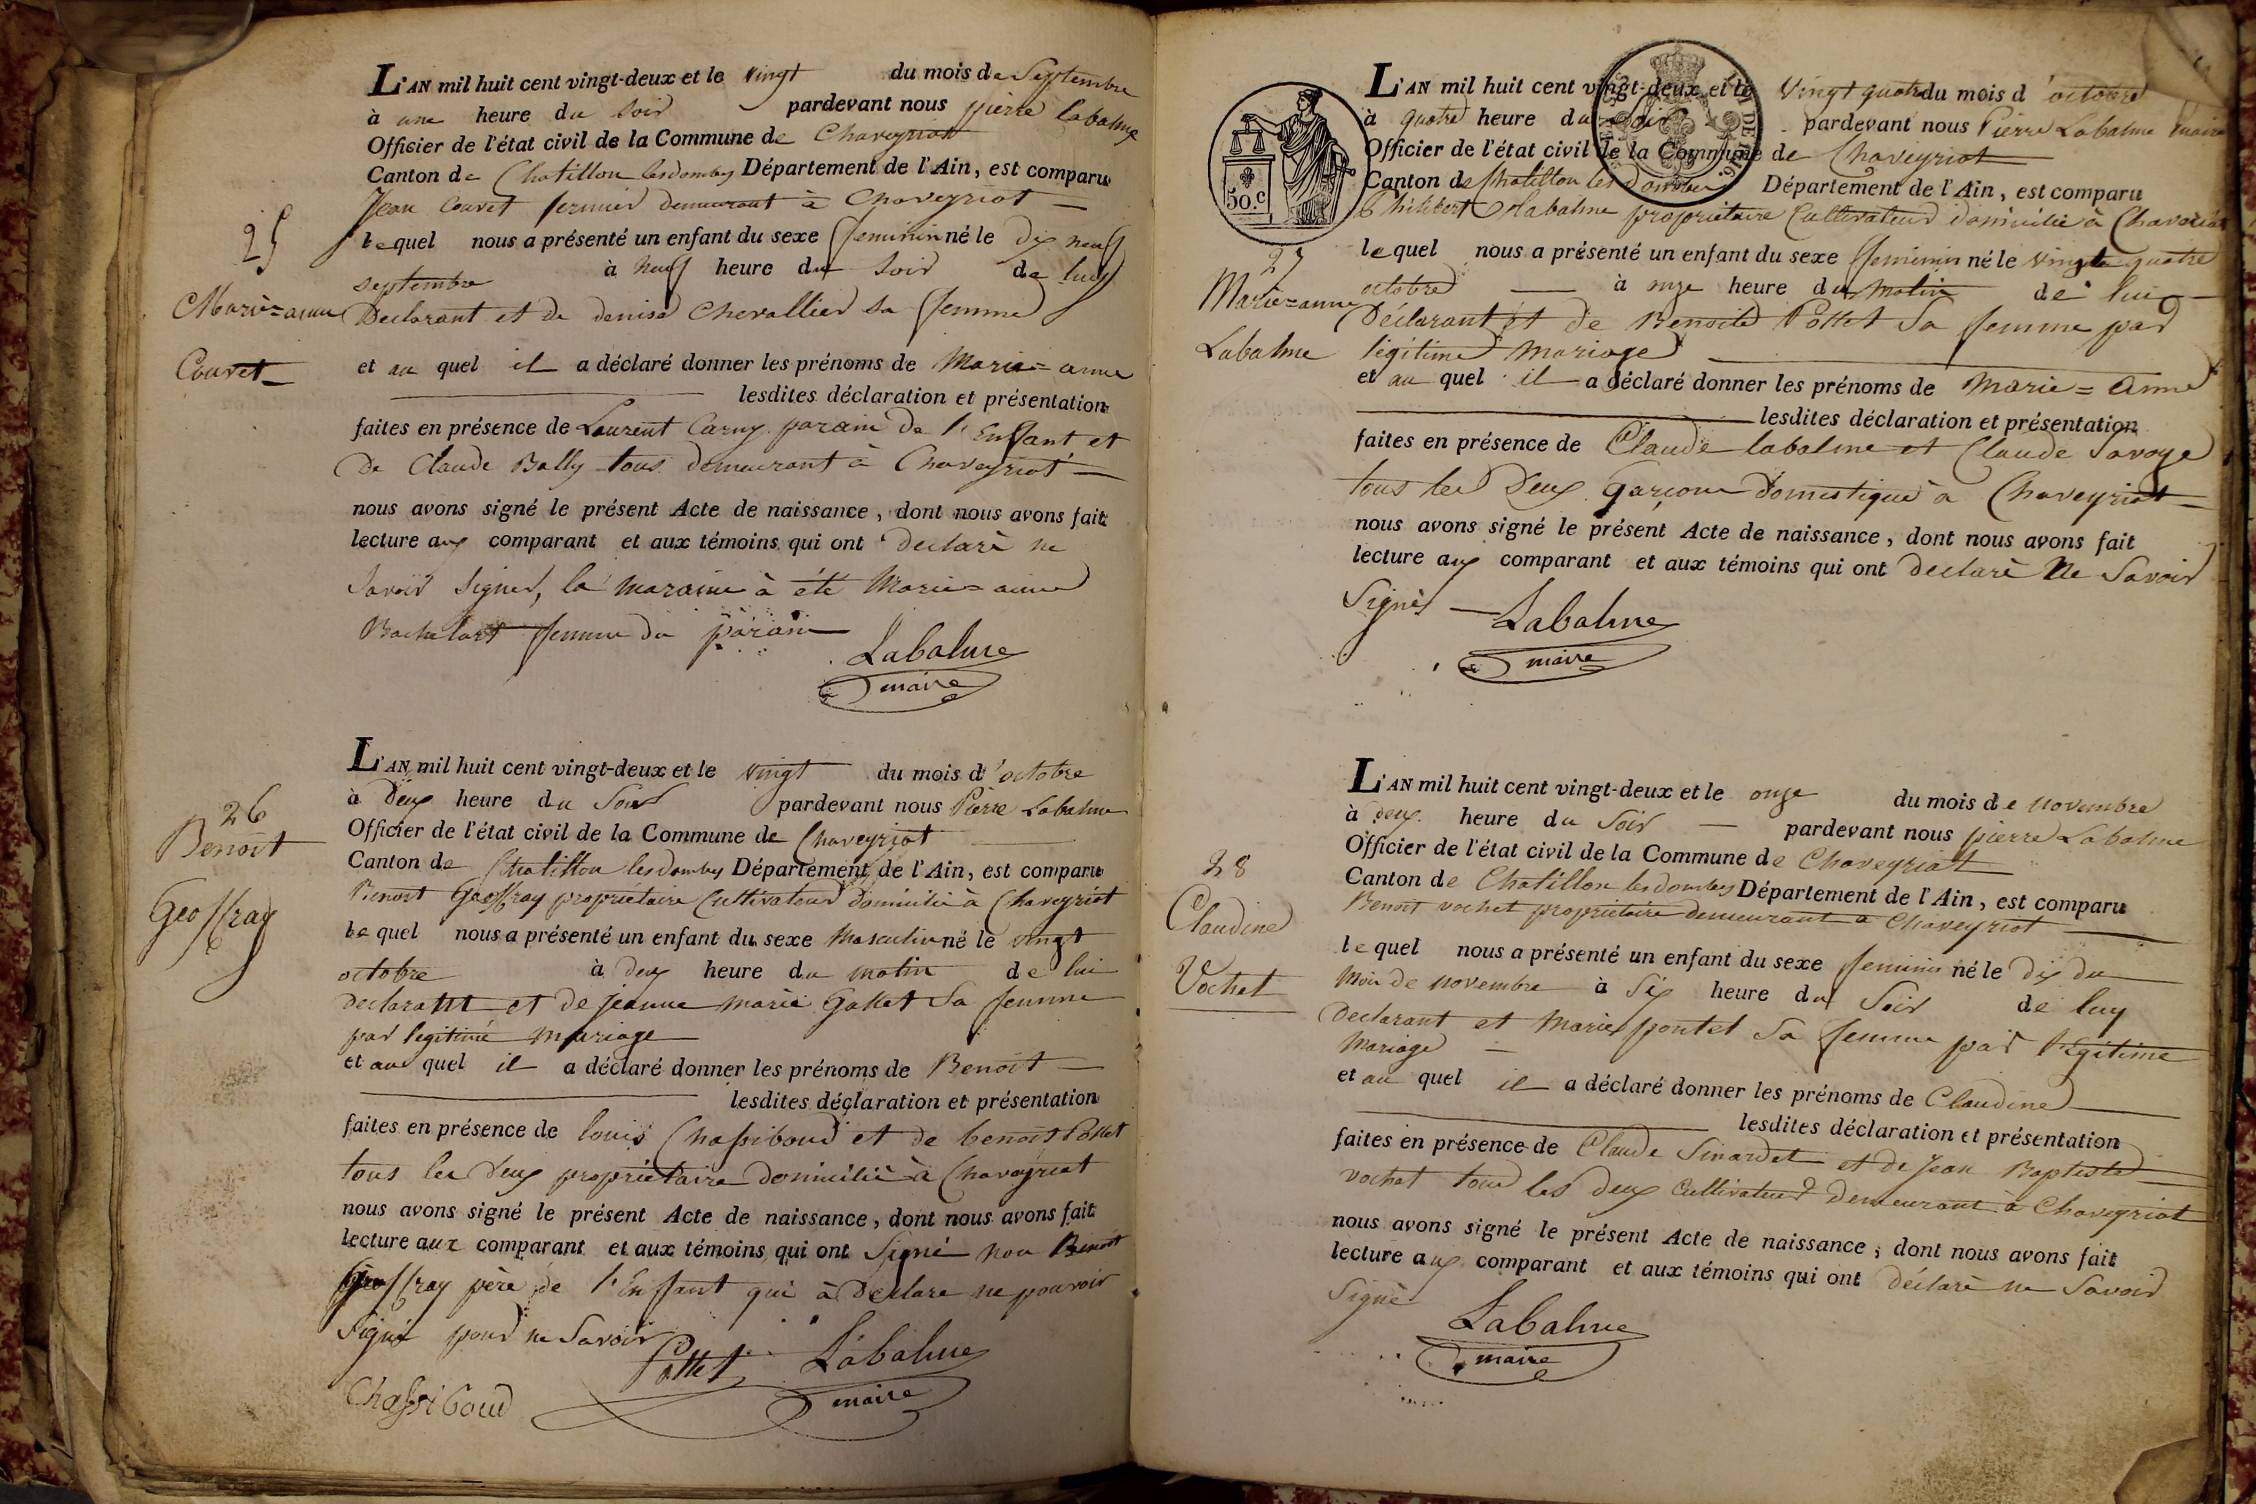 L'AN mil huit cent vingt-deux et le vingt du mois de Septembre
à une heure du soir pardevant nous pierre labalme
Officier de l'état civil de la Commune de Chaveyriat
Canton de Chatillon lesdombes Département de l'Ain, est comparu
Jean Couvet fermier demeurant à Chaveyriat
lequel nous a présenté un enfant du sexe feminin né le dix neuf
septembre à neuf heure du soir de luy
Declarant et de denise Chevallier sa femme
et au quel il a déclaré donner les prénoms de Marie=anne
lesdites déclaration et présentation
faites en présence de Laurent Carry parain de l'Enfant et
De Claude Bally tous demeurant à Chaveyriat
nous avons signé le présent Acte de naissance, dont nous avons fait
lecture aux comparant et aux témoins qui ont declaré ne
Savoir signer, la maraine à été Marie=anne
Bachelart femme du parain
Labalme
maire
25
Marie=anne
Couvet
L'AN mil huit cent vingt-deux et le vingt du mois d'octobre
à deux heure du Soir pardevant nous Pierre Labalme
Officier de l'état civil de la Commune de Chaveyriat
Canton de Chatillon lesdombes Département de l'Ain, est comparu
Benoit Geoffray propriétaire Cultivateur domicilié à Chaveyriat
lequel nous a présenté un enfant du sexe Masculin né le vingt
octobre à deux heure du matin de lui
declarant et de jeanne marie Gallet Sa femme
par legitime mariage
et au quel il a déclaré donner les prénoms de Benoit
lesdites déclaration et présentation
faites en présence de louis Chassiboud et de benoit Pollet
tous les deux propriétaire domicilié à Chaveyriat
nous avons signé le présent Acte de naissance, dont nous avons fait
lecture aux comparant et aux témoins qui ont Signé non Benoit
Geoffray père de l'Enfant qui à Déclare ne pouvoir
Signé pour ne Savoir
Pollet Labalme
Chassiboud maire
26
Benoit
Geoffray
50.C
L'AN mil huit cent vingt-deux et le Vingt quatre du mois d'octobre
à quatre heure du Soir pardevant nous Pierre Labalme maire
Officier de l'état civil de la Commune de Chaveyriat
Canton de Chatillon les Dombes Département de l'Ain, est comparu
Philibert Labalme propriétaire Cultivateur domicilié à Chaveriat
lequel nous a présenté un enfant du sexe feminin né le vingt quatre
octobre à onze heure du matin de lui
Déclarant et de Benoite Pollet Sa femme par
légitime mariage
et au quel il a déclaré donner les prénoms de Marie=Anne
lesdites déclaration et présentation
faites en présence de Claude labalme et Claude Savoye
tous les deux garçon domestique à Chaveyriat
nous avons signé le présent Acte de naissance, dont nous avons fait
lecture aux comparant et aux témoins qui ont declaré Ne Savoir
Signér Labalme
maire
27
Marie=anne
Labalme
L'AN mil huit cent vingt-deux et le onze du mois de novembre
à deux heure du Soir pardevant nous pierre Labalme
Officier de l'état civil de la Commune de Chaveyriat
Canton de Chatillon les dombes Département de l'Ain, est comparu
Benoit vochet propriétaire demeurant à Chaveyriat
lequel nous a présenté un enfant du sexe feminin né le dix du
Mois de novembre à Six heure du Soir de luy
Declarant et Marie pontet Sa femme par légitime
Mariage
et au quel il a déclaré donner les prénoms de Claudine
lesdites déclaration et présentation
faites en présence de Claude Sinardet et de Jean Baptiste
vochet tous les deux Cultivateur demeurant à Chaveyriat
nous avons signé le présent Acte de naissance, dont nous avons fait
lecture aux comparant et aux témoins qui ont déclaré ne Savoir
Signé
Labalme
maire
28
Claudine
Vochet